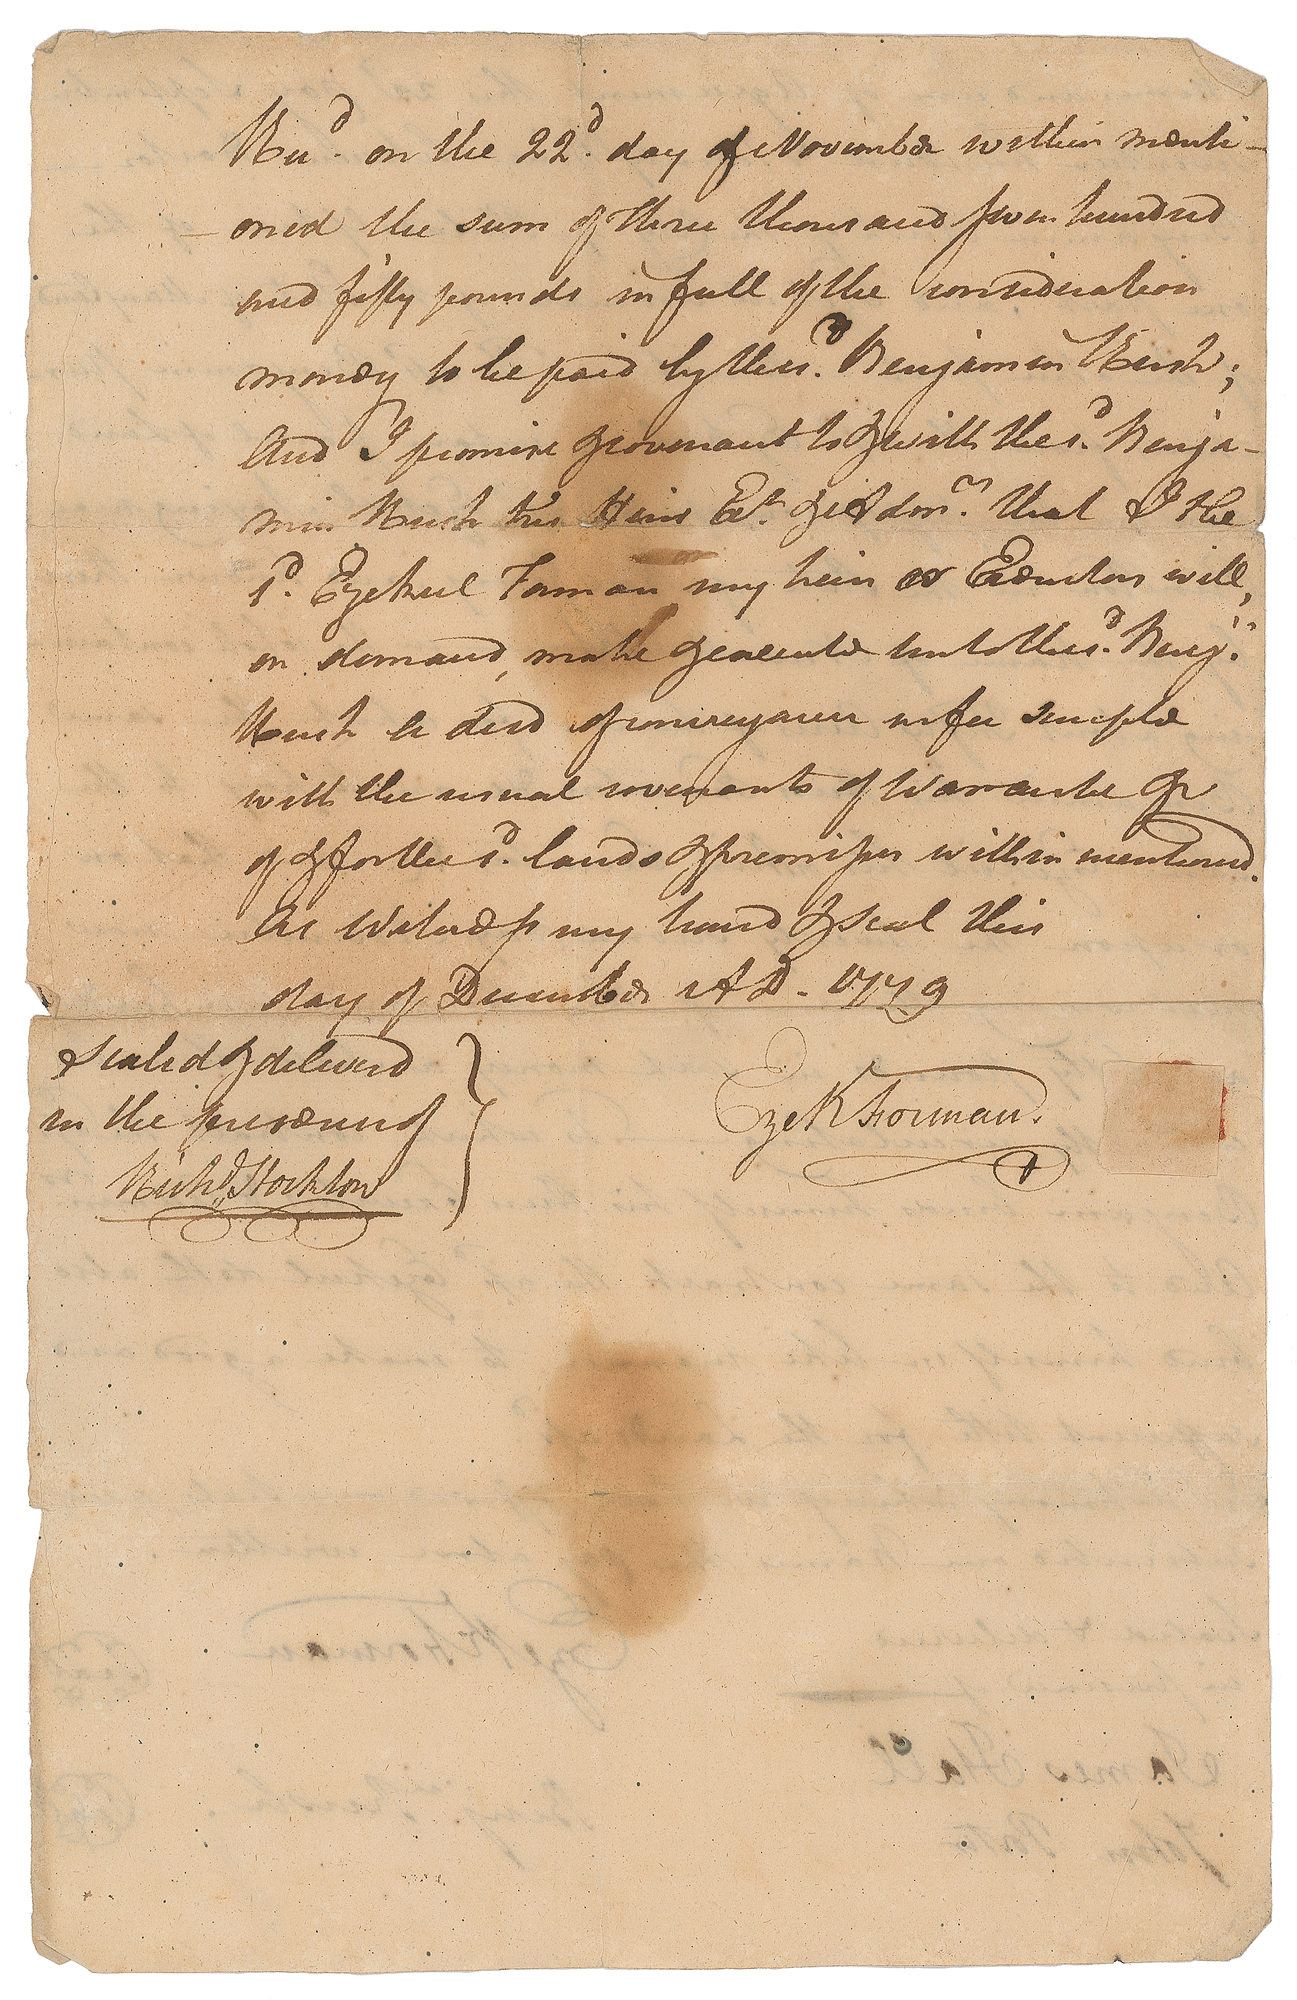 Recd. on the 22d. day of November within menti-
-oned the sum of three thousand seven hundred
and fifty pounds in full of the consideration
money to be paid by the sd. Benjamin Rush;
And I promise & covenant to & with the sd. Benja-
min Rush his Heirs Exrs. & Admrs. that I the
sd. Ezekiel Forman my heirs or Executors will,
on demand, make & execute unto the sd. Benjn.
Rush a deed of conveyance in fee simple
with the usual covenants of Warantee &c
of & for the sd. lands & premises within mentioned.
As Witness my hand & seal this
day of December A D. 1779
Sealed & deliverd
in the presence of
Richd. Stockton
Ezek Forman.